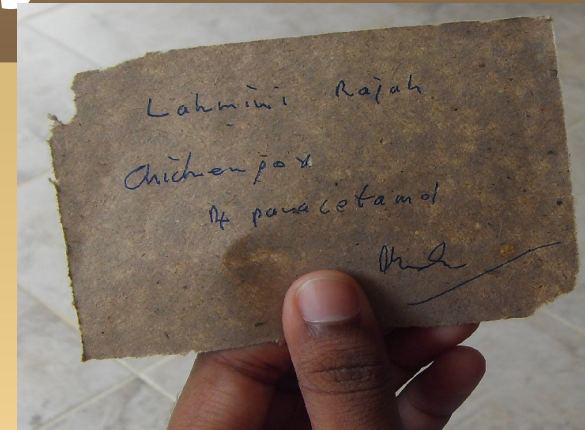 Lahmini Rajah
Chickenpox
Rx paracetamol